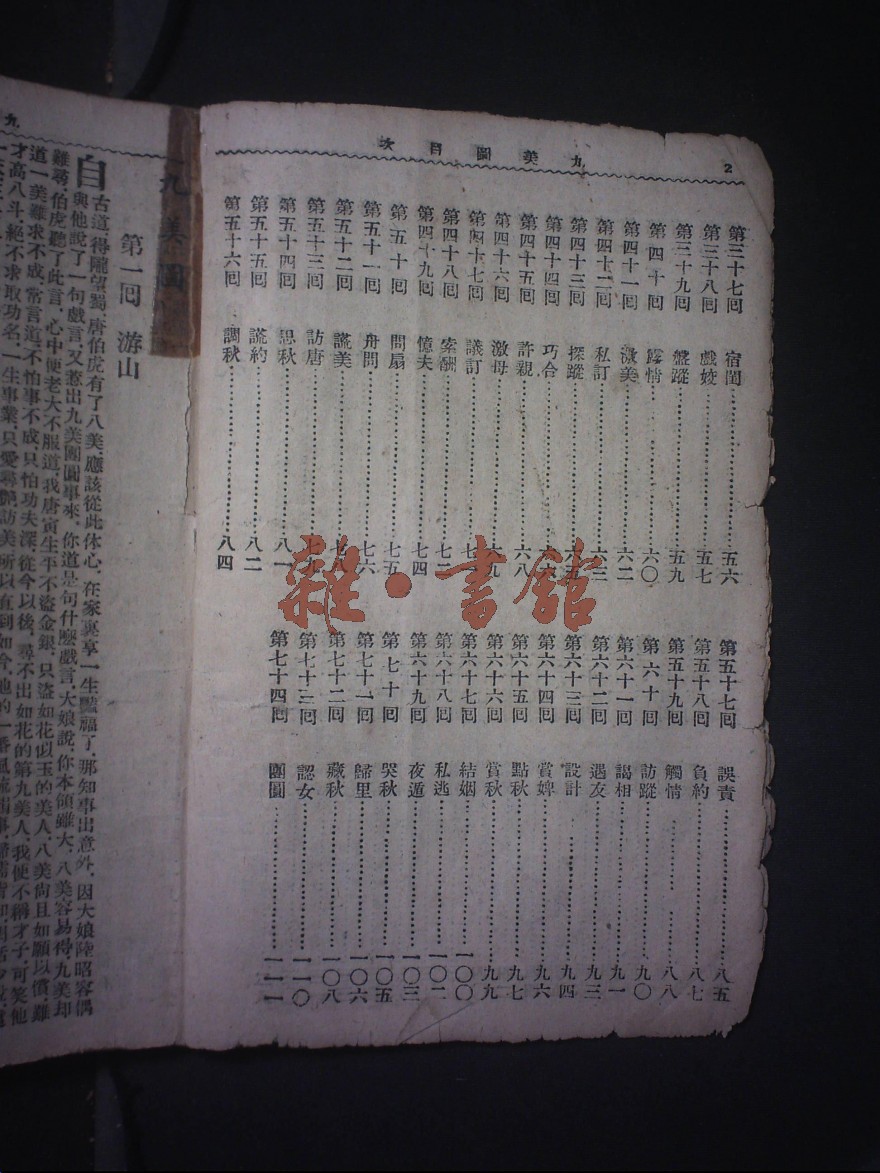 九美圖目次 2
第三十七回 宿閨 五六
第三十八回 戲姣 五七
第三十九回 盤蹤 五九
第四十回 露情 六〇
第四十一回 激美 六二
第四十二回 私訂 六三
第四十三回 探蹤
第四十四回 巧合
第四十五回 許親 六八
第四十六回 激母 六九
第四十七回 議訂 七二
第四十八回 索酬 七二
第四十九回 憶夫 七四
第五十回 問扇 七五
第五十一回 舟問 七六
第五十二回 謊美 七八
第五十三回 訪唐 七九
第五十四回 思秋 八一
第五十五回 謊約 八二
第五十六回 調秋 八四
第五十七回 誤責 八五
第五十八回 負約 八七
第五十九回 觸情 八八
第六十回 訪蹤 九〇
第六十一回 謁相 九一
第六十二回 遇友 九三
第六十三回 設計 九四
第六十四回 賞婢 九六
第六十五回 點秋 九七
第六十六回 賞秋 九九
第六十七回 結姻 一〇〇
第六十八回 私逃 一〇二
第六十九回 夜遁 一〇三
第七十回 哭秋 一〇五
第七十一回 歸里 一〇六
第七十二回 藏秋 一〇八
第七十三回 認女 一一〇
第七十四回 團圓 一一一
雜·書館
九美圖
第一回 游山
自古道、得隴望蜀、唐伯虎有了八美、應該從此休心、在家裏享一生豔福了、那知事出意外、因大娘陸昭容偶
與他說了一句戲言、又惹出九美團圓事來、你道是句什麼戲言、大娘說、你本領雖大、八美容易得、九美却
難尋、伯虎聽了此言、心中便老大不服道、我唐寅生平不盜金銀、只盜如花似玉的美人、八美尚且如願以償、難
道一美難求不成、常言道、不怕事不成、只怕功夫深、從今以後、尋不出如花的第九美人、我便不稱才子、可笑他
才高八斗、絕不求取功名、一生事業、只愛尋艷訪美、所以直到如今、他的一番風流
九